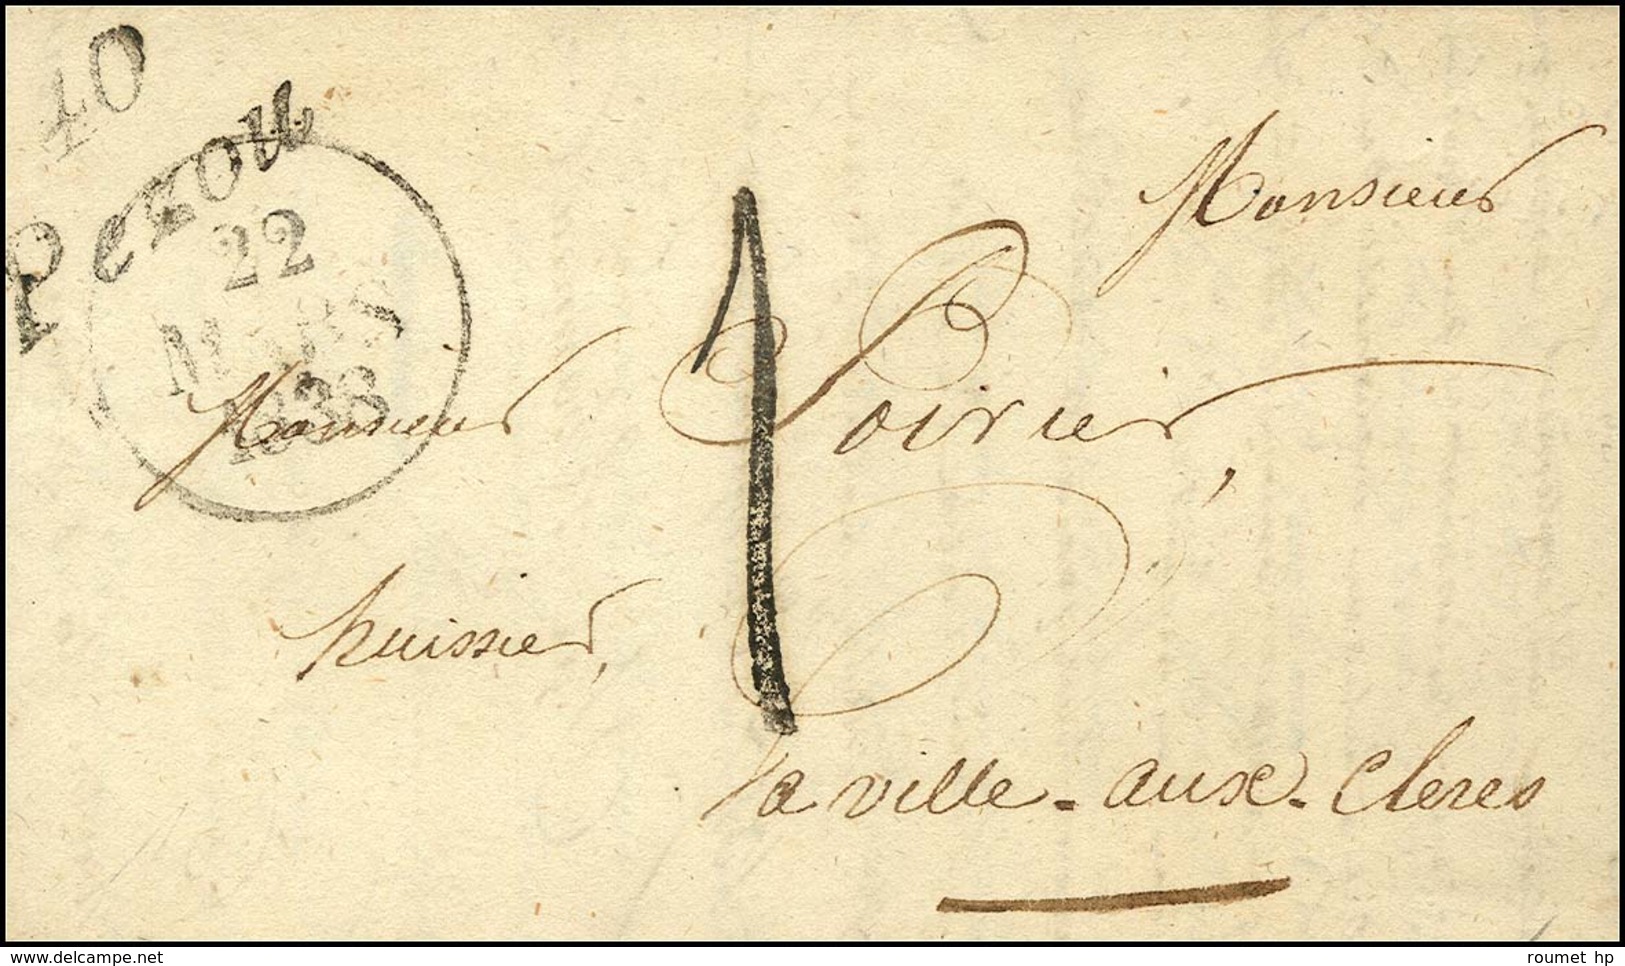 40
Pezou
22
MARS
1838
Monsieur
Monsieur Poirier,
huissier,
1
la ville-aux-Clercs
www.delcampe.net
roumet hp